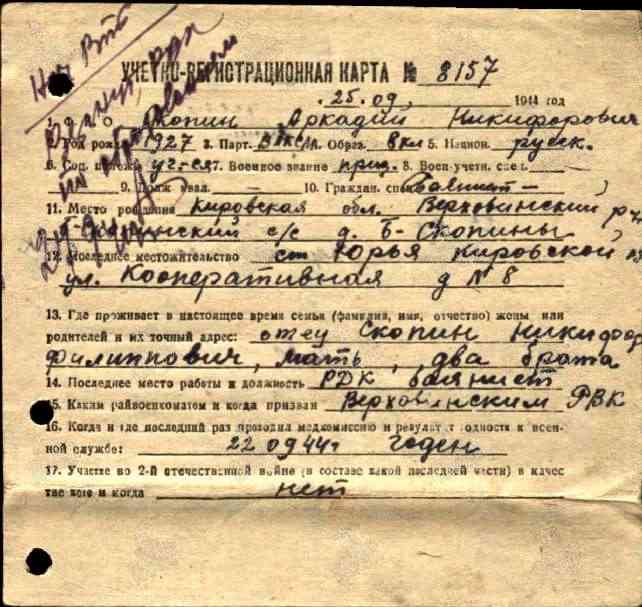 Нач ВТО
УЧЕТНО-РЕГИСТРАЦИОННАЯ КАРТА № 8157
25.09, 1944 год
1. Ф. И. О. Скопин Аркадий Никифорович
2. Год рожд. 1927 3. Парт. ВЛКСМ 4. Образ. 8 кл 5. Национ. русск.
6. Соц. уч-ся 7. Военное звание приз. 8. Воен-учетн. спец.
9. Долж 10. Граждан. спец. Баянист
11. Место рождения Кировская обл. Верховинский р-н,
с/с д. Б-Скопины
12. Последнее местожительство ст Юрья Кировской
ул. Кооперативная д № 8
13. Где проживает в настоящее время семья (фамилия, имя, отчество) жены или
родителей и их точный адрес: отец Скопин Никифор
Филиппович, мать, два брата
14. Последнее место работы и должность РДК баянист
15. Каким райвоенкоматом и когда призван Верховинским РВК
16. Когда и где последний раз проходил медкомиссию и результат годности к воен-
ной службе: 22 09 44г годен
17. Участие во 2-й отечественной войне (в составе какой последней части) в качес
тве кого и когда нет